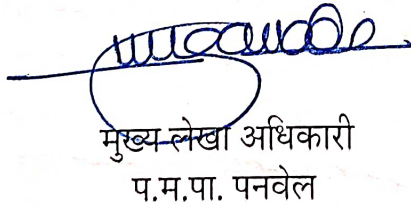 मुख्य लेखा अधिकारी
प.म.पा. पनवेल